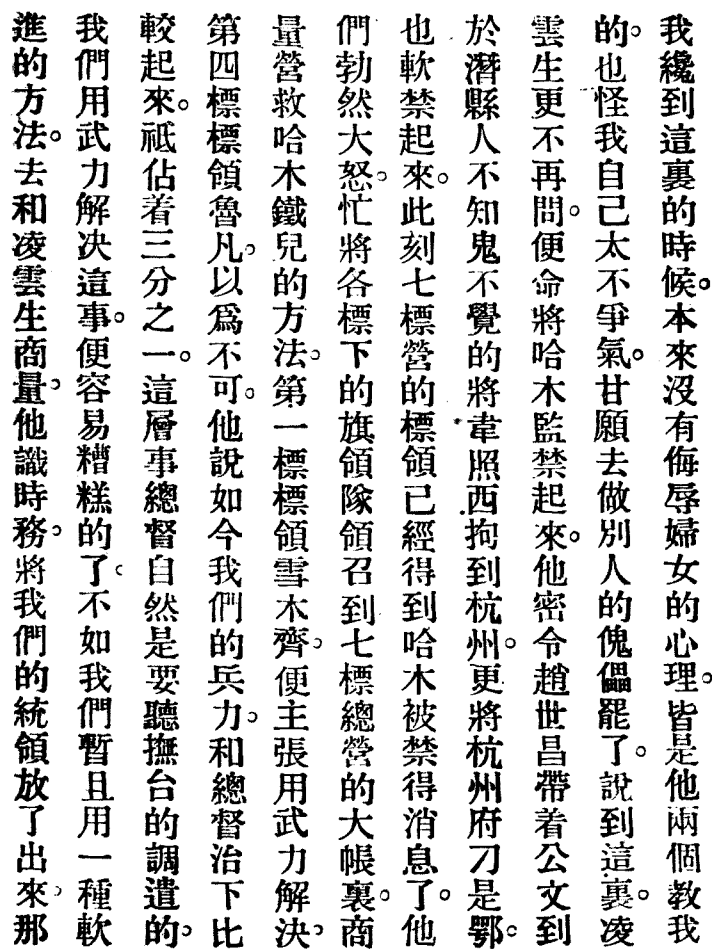 我纔到這裏的時候。本來沒有侮辱婦女的心理。皆是他兩個教我
的。也怪我自己太不爭氣。甘願去做別人的傀儡罷了。說到這裏。凌
雲生更不再問。便命將哈木監禁起來。他密令趙世昌帶着公文到
於潛縣人不知鬼不覺的將韋照西拘到杭州。更將杭州府刀是鄂。
也軟禁起來。此刻七標營的標領已經得到哈木被禁得消息了。他
們勃然大怒。忙將各標下的旗領隊領召到七標總營的大帳裏。商
量營救哈木鐵兒的方法。第一標標領雪木齊。便主張用武力解決。
第四標標領魯凡。以爲不可。他說如今我們的兵力。和總督治下比
較起來。祗佔着三分之一。這層事總督自然是要聽撫台的調遣的。
我們用武力解決這事。便容易糟糕的了。不如我們暫且用一種軟
進的方法。去和凌雲生商量。他識時務。將我們的統領放了出來。那